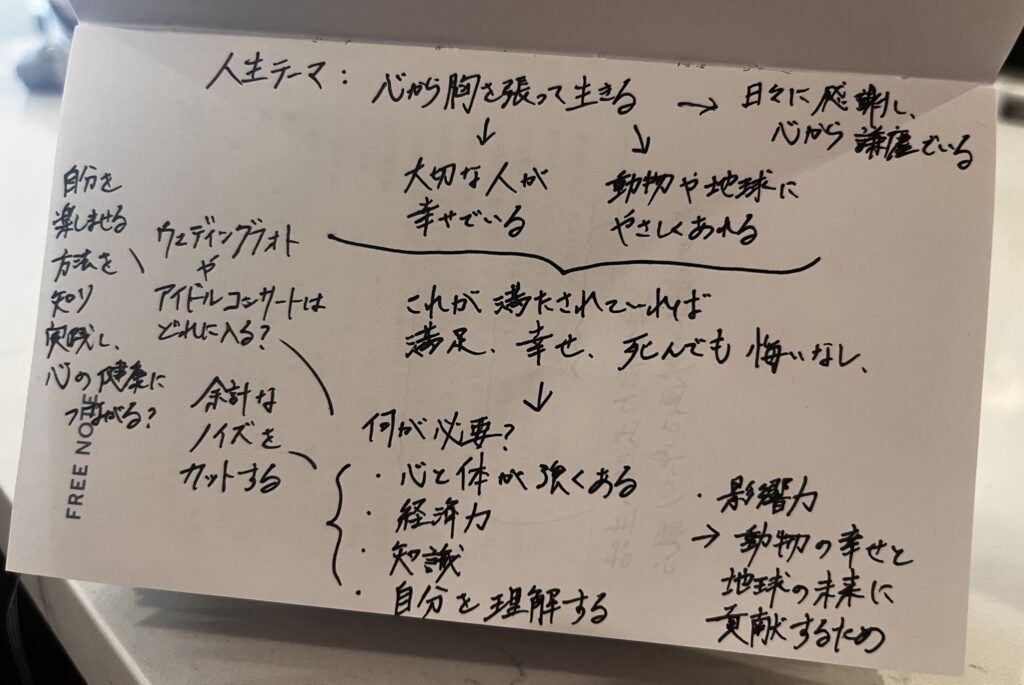 人生テーマ: 心から胸を張って生きる → 日々に感謝し、
心から謙虚でいる
大切な人が
幸せでいる
動物や地球に
やさしくあれる
自分を
楽しませる
方法を
知り
実践し、
心の健康に
つながる?
ウェディングフォト
や
アイドルコンサートは
どれに入る?
これが満たされていれば
満足、幸せ、死んでも悔いなし、
余計な
ノイズを
カットする
何が必要?
・心と体が強くある
・経済力
・知識
・自分を理解する
・影響力
→ 動物の幸せと
地球の未来に
貢献するため
FREE NOTE